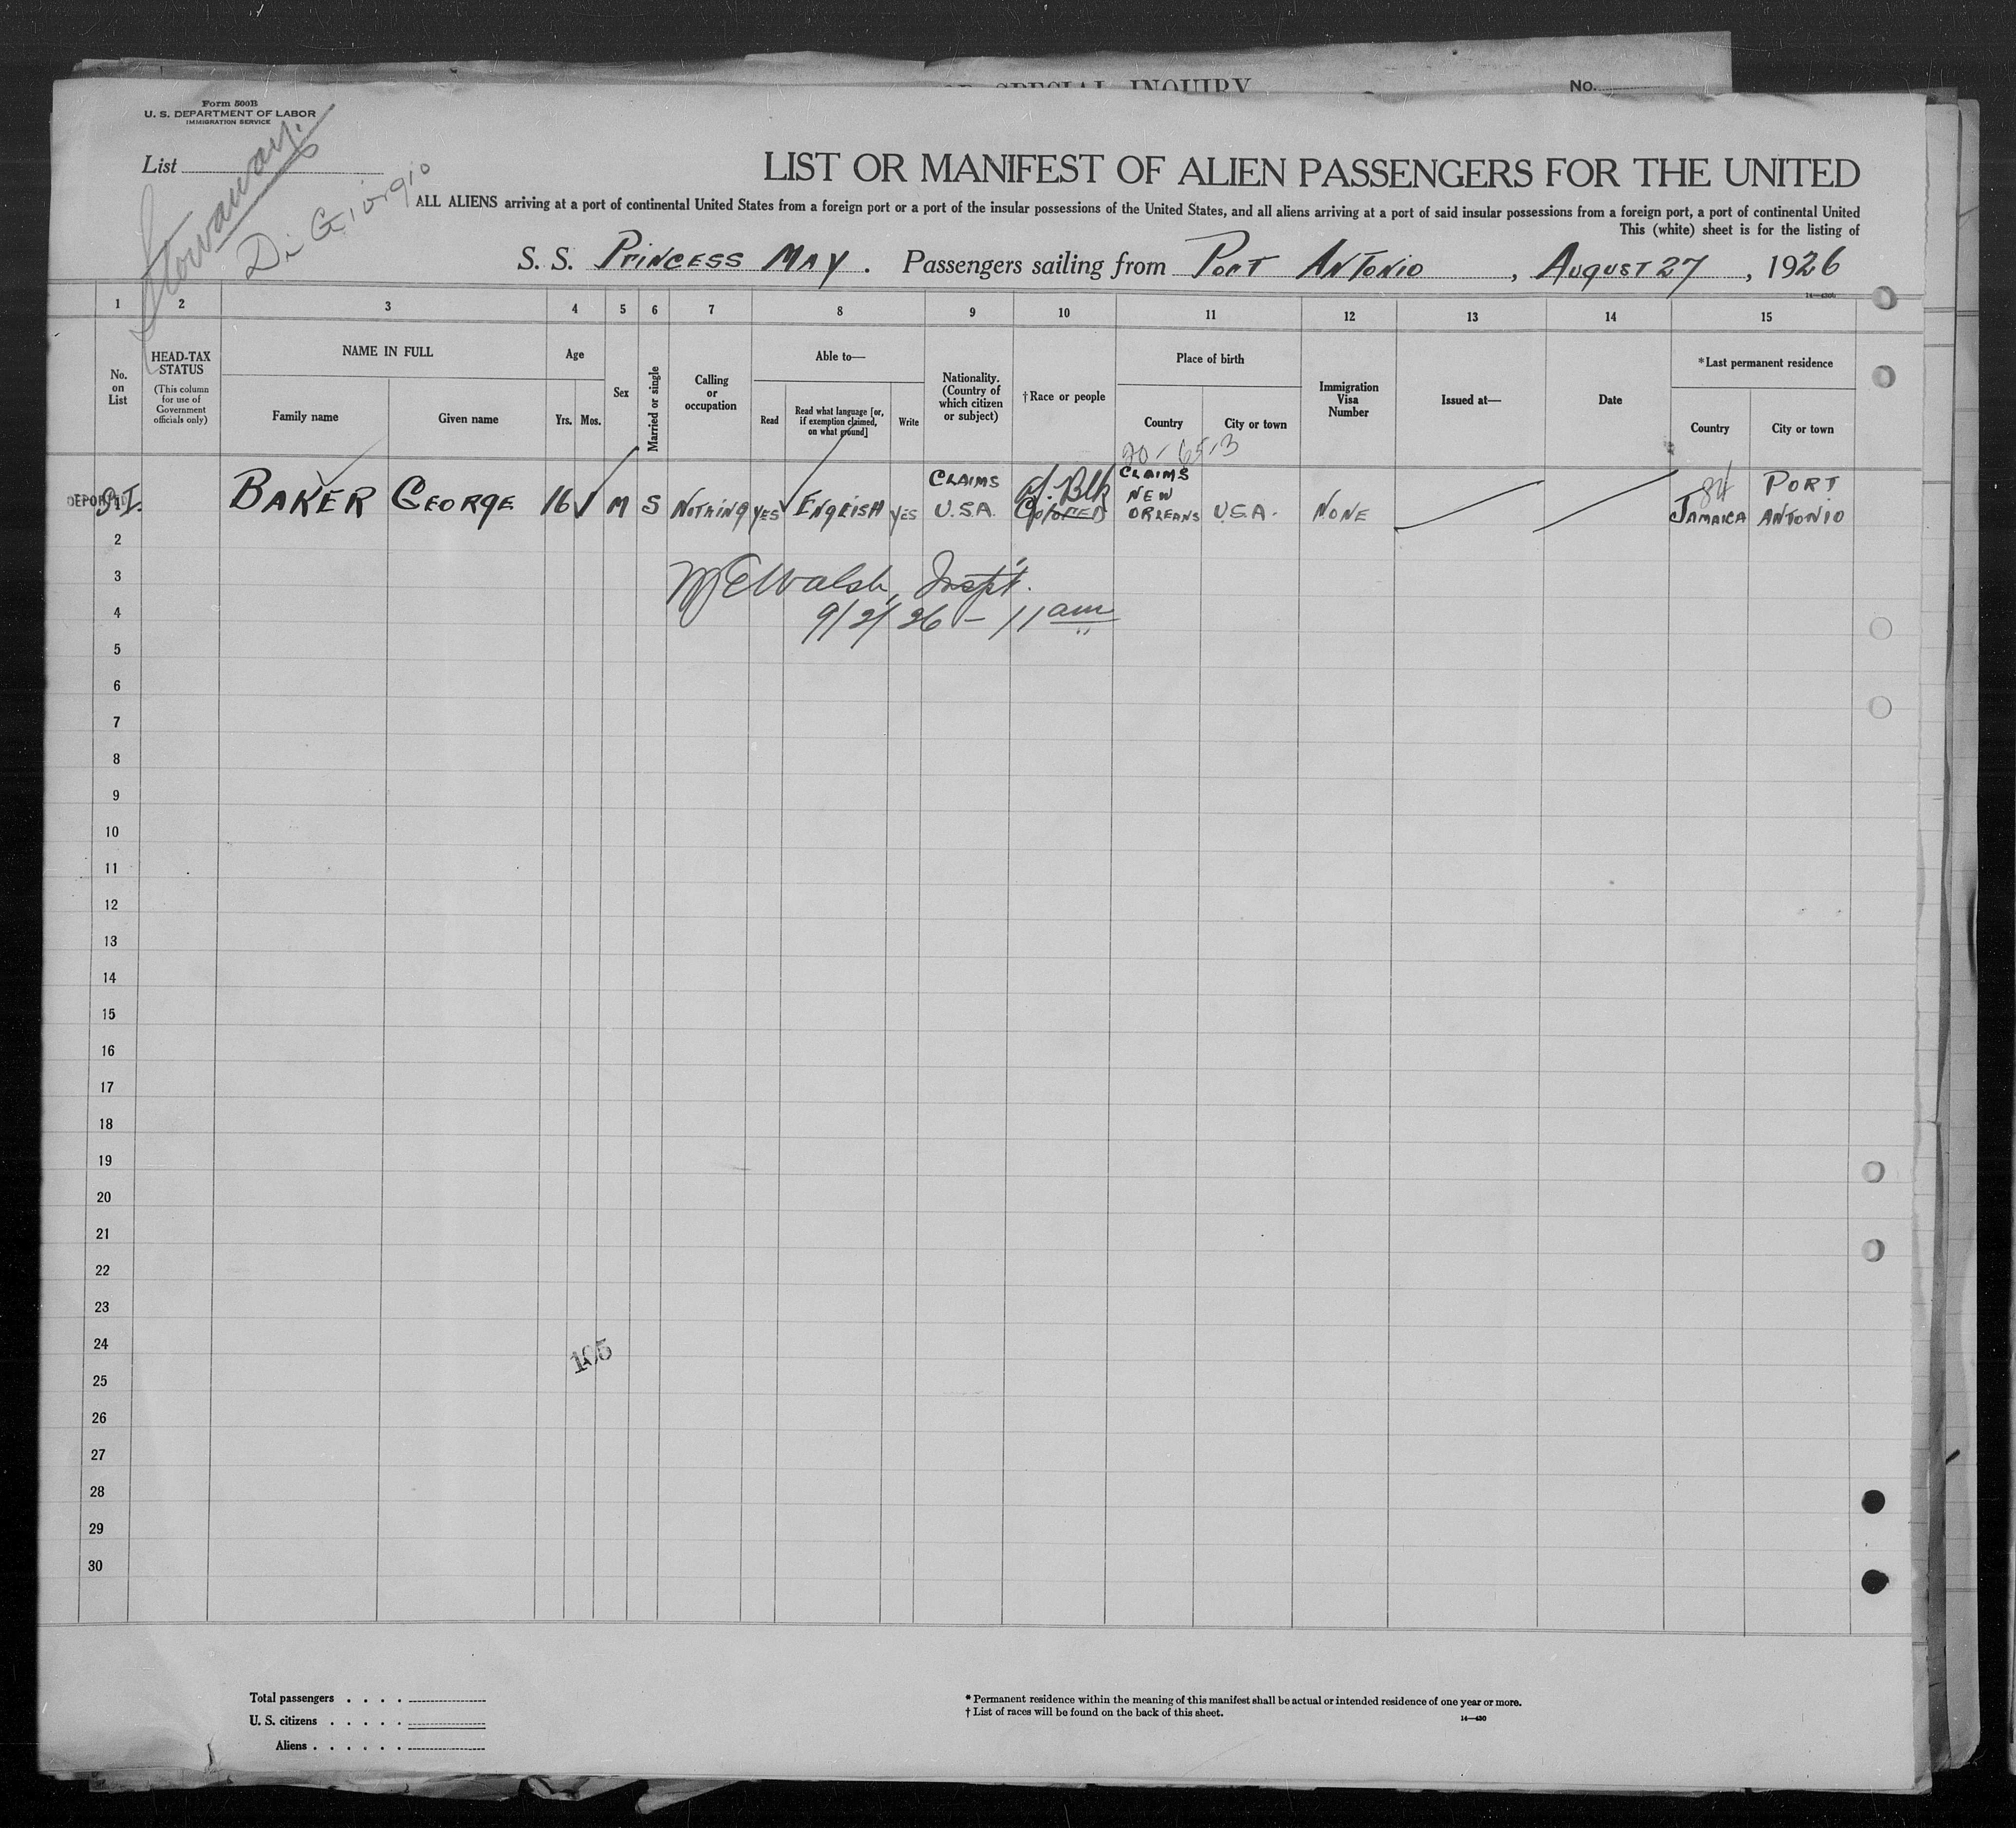 SPECIAL INQUIRY
No.
Form 500B
U. S. DEPARTMENT OF LABOR
IMMIGRATION SERVICE
List
Stowaway.
Di Giorgio
LIST OR MANIFEST OF ALIEN PASSENGERS FOR THE UNITED
ALL ALIENS arriving at a port of continental United States from a foreign port or a port of the insular possessions of the United States, and all aliens arriving at a port of said insular possessions from a foreign port, a port of continental United
This (white) sheet is for the listing of
S. S. PRINCESS MAY. Passengers sailing from PORT ANTONIO, AUGUST 27, 1926
1 2 3 4 5 6 7 8 9 10 11 12 13 14 15
No. on List
HEAD-TAX STATUS
(This column for use of Government officials only)
NAME IN FULL
Family name
Given name
Age
Yrs. Mos.
Sex
Married or single
Calling or occupation
Able to—
Read
Read what language [or, if exemption claimed, on what ground]
Write
Nationality. (Country of which citizen or subject)
†Race or people
Place of birth
Country
City or town
Immigration Visa Number
Issued at—
Date
*Last permanent residence
Country
City or town
20-65-3
DEPORTED S.I. BAKER GEORGE 16 M S NOTHING YES ENGLISH YES CLAIMS U.S.A. Af. Blk COLORED CLAIMS NEW ORLEANS U.S.A. NONE 84 JAMAICA PORT ANTONIO
2
3
W E Walsh, Insp't.
4
9/2/26 – 11 am
5
6
7
8
9
10
11
12
13
14
15
16
17
18
19
20
21
22
23
24
105
25
26
27
28
29
30
Total passengers . . . .
U. S. citizens . . . . .
Aliens . . . . . .
* Permanent residence within the meaning of this manifest shall be actual or intended residence of one year or more.
† List of races will be found on the back of this sheet.
14—430